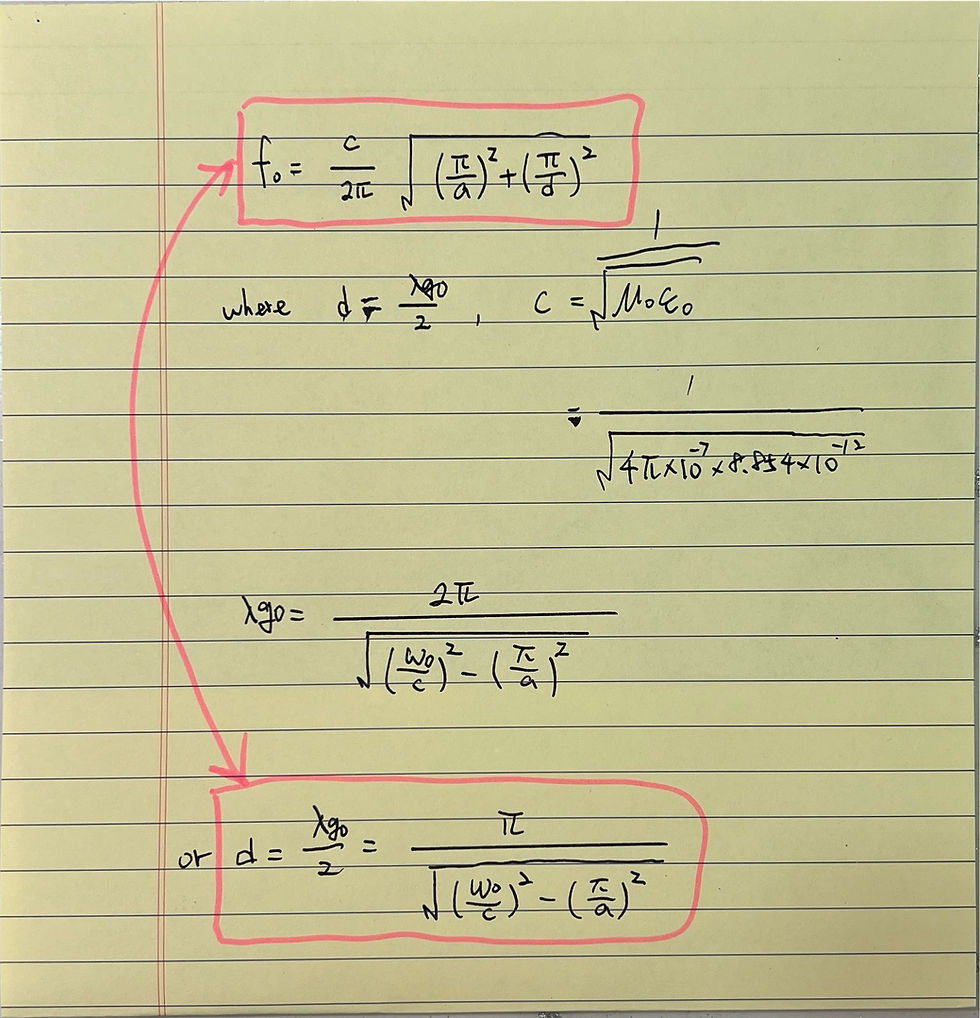 f₀ = c/2π √((π/a)² + (π/d)²)
where d = λg0/2 , c = 1/√(μ₀ε₀)
= 1/√(4π×10⁻⁷×8.854×10⁻¹²)
λg0 = 2π/√((ω₀/c)² − (π/a)²)
or d = λg0/2 = π/√((ω₀/c)² − (π/a)²)